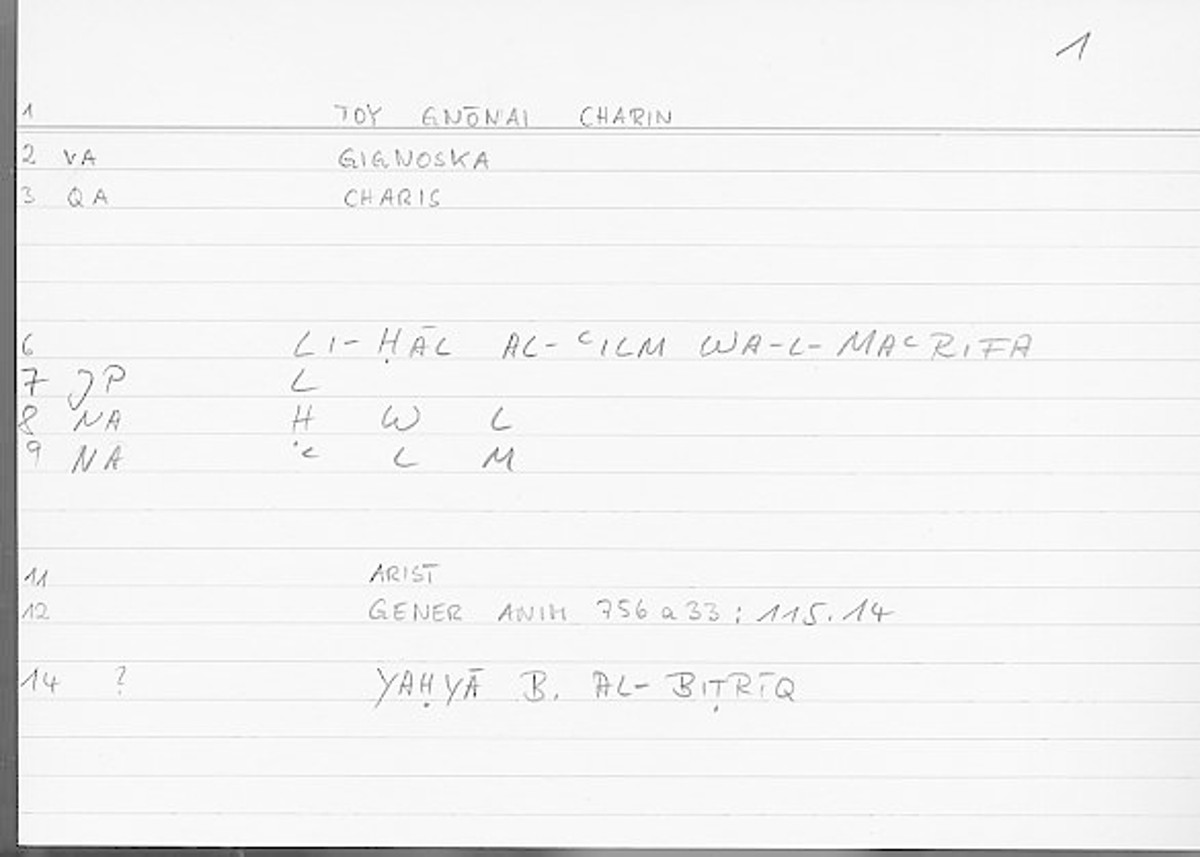 1
1 TOY GNŌNAI CHARIN
2 VA GIGNOSKA
3 QA CHARIS
6 LI-ḤĀL AL-ʿILM WA-L-MAʿRIFA
7 JP L
8 NA Ḥ W L
9 NA ʿ L M
11 ARIST
12 GENER ANIM 756 a 33 : 115.14
14 ? YAḤYĀ B. AL-BIṬRĪQ